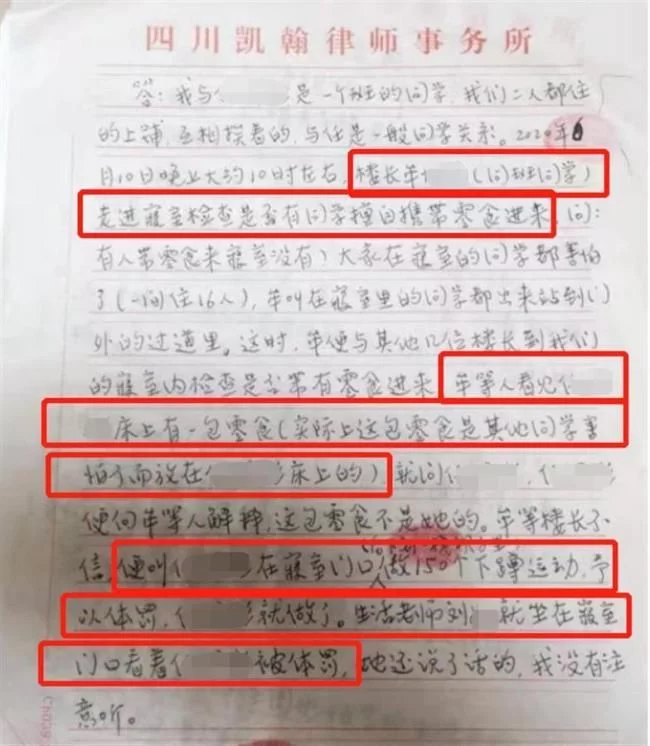 四川凯翰律师事务所
答:我与 是一个班的同学,我们二人都住
的上铺,互相挨着的,与任是一般同学关系。2020年6
月10日晚上大约10时左右,楼长牟 (同班同学)
走进寝室检查是否有同学擅自携带零食进来,问:
有人带零食来寝室没有?大家在寝室的同学都害怕
了(一间住16人),牟叫在寝室里的同学都出来站到门
外的过道里。这时,牟便与其他几位楼长到我们
的寝室内检查是否带有零食进来,牟等人看见任
床上有一包零食(实际上这包零食是其他同学害
怕了而放在任 床上的),就问任 ,任
便向牟等人解释,这包零食不是她的。牟等楼长不
信,便叫任 在寝室门口做150个下蹲运动,予
以体罚,任 就做了。生活老师刘 就坐在寝室
门口看着任 被体罚,她还说了话的,我没有注
意听。